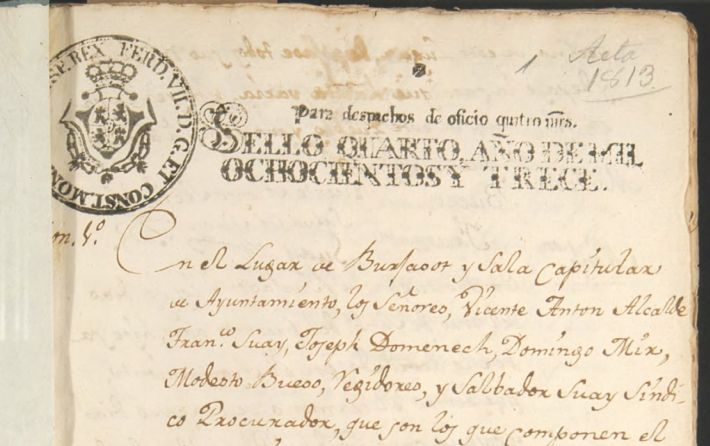 1
Acta
1813.
HISP. REX FERD. VII. D. G. ET CONST. MON
Para despachos de oficio quatro mrs.
SELLO QUARTO, AÑO DE MIL
OCHOCIENTOS Y TRECE.
En el Lugar de Burjasot y Sala Capitular
de Ayuntamiento, los Señores, Vicente Anton Alcalde
Franco. Suay, Joseph Domenech, Domingo Mir,
Modesto Bueso, Regidores, y Salbador Suay Sindi-
co Procurador, que son los que componen el